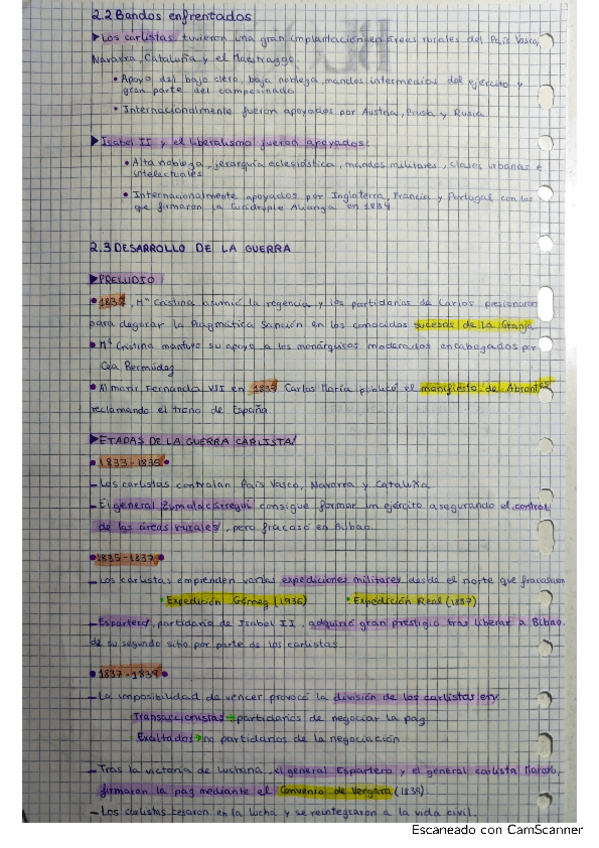 2.2 Bandos enfrentados
▶ Los carlistas tuvieron una gran implantación en áreas rurales del País Vasco,
Navarra, Cataluña y el Maestrazgo.
• Apoyo del bajo clero, baja nobleza, mandos intermedios del ejército y
gran parte del campesinado
• Internacionalmente fueron apoyados por Austria, Prusia y Rusia
▶ Isabel II y el liberalismo fueron apoyados:
• Alta nobleza, jerarquía eclesiástica, mandos militares, clases urbanas e
intelectuales
• Internacionalmente apoyados por Inglaterra, Francia y Portugal con los
que firmaron la Cuádruple Alianza en 1834
2.3 DESARROLLO DE LA GUERRA
▶ PRELUDIO:
• , Mª Cristina asumió la regencia y los partidarios de Carlos presionaron
para derogar la Pragmática Sanción en los conocidos sucesos de La Granja.
• Mª Cristina mantuvo su apoyo a los monárquicos moderados encabezados por
Cea Bermúdez
• Al morir Fernando VII en Carlos María publicó el manifiesto de Abrantes
reclamando el trono de España
▶ ETADAS DE LA GUERRA CARLISTA/
• 1833-1835 •
- Los carlistas controlan País Vasco, Navarra y Cataluña
- El general Zumalacárregui consigue formar un ejército asegurando el control
de las áreas rurales, pero fracasó en Bilbao
• 1835-1837 •
- Los carlistas emprenden varias expediciones militares desde el norte que fracasaron
• Expedición Gómez (1936) • Expedición Real (1837)
- Espartero, partidario de Isabel II, adquirió gran prestigio tras liberar a Bilbao
de su segundo sitio por parte de los carlistas
• 1837-1839 •
- La imposibilidad de vencer provocó la división de los carlistas en:
Transaccionistas → partidarios de negociar la paz
Exaltados → no partidarios de la negociación
- Tras la victoria de Luchana, el general Espartero y el general carlista Maroto,
firmaron la paz mediante el Convenio de Vergara (1839)
- Los carlistas cesaron en la lucha y se reintegraron a la vida civil.
Escaneado con CamScanner